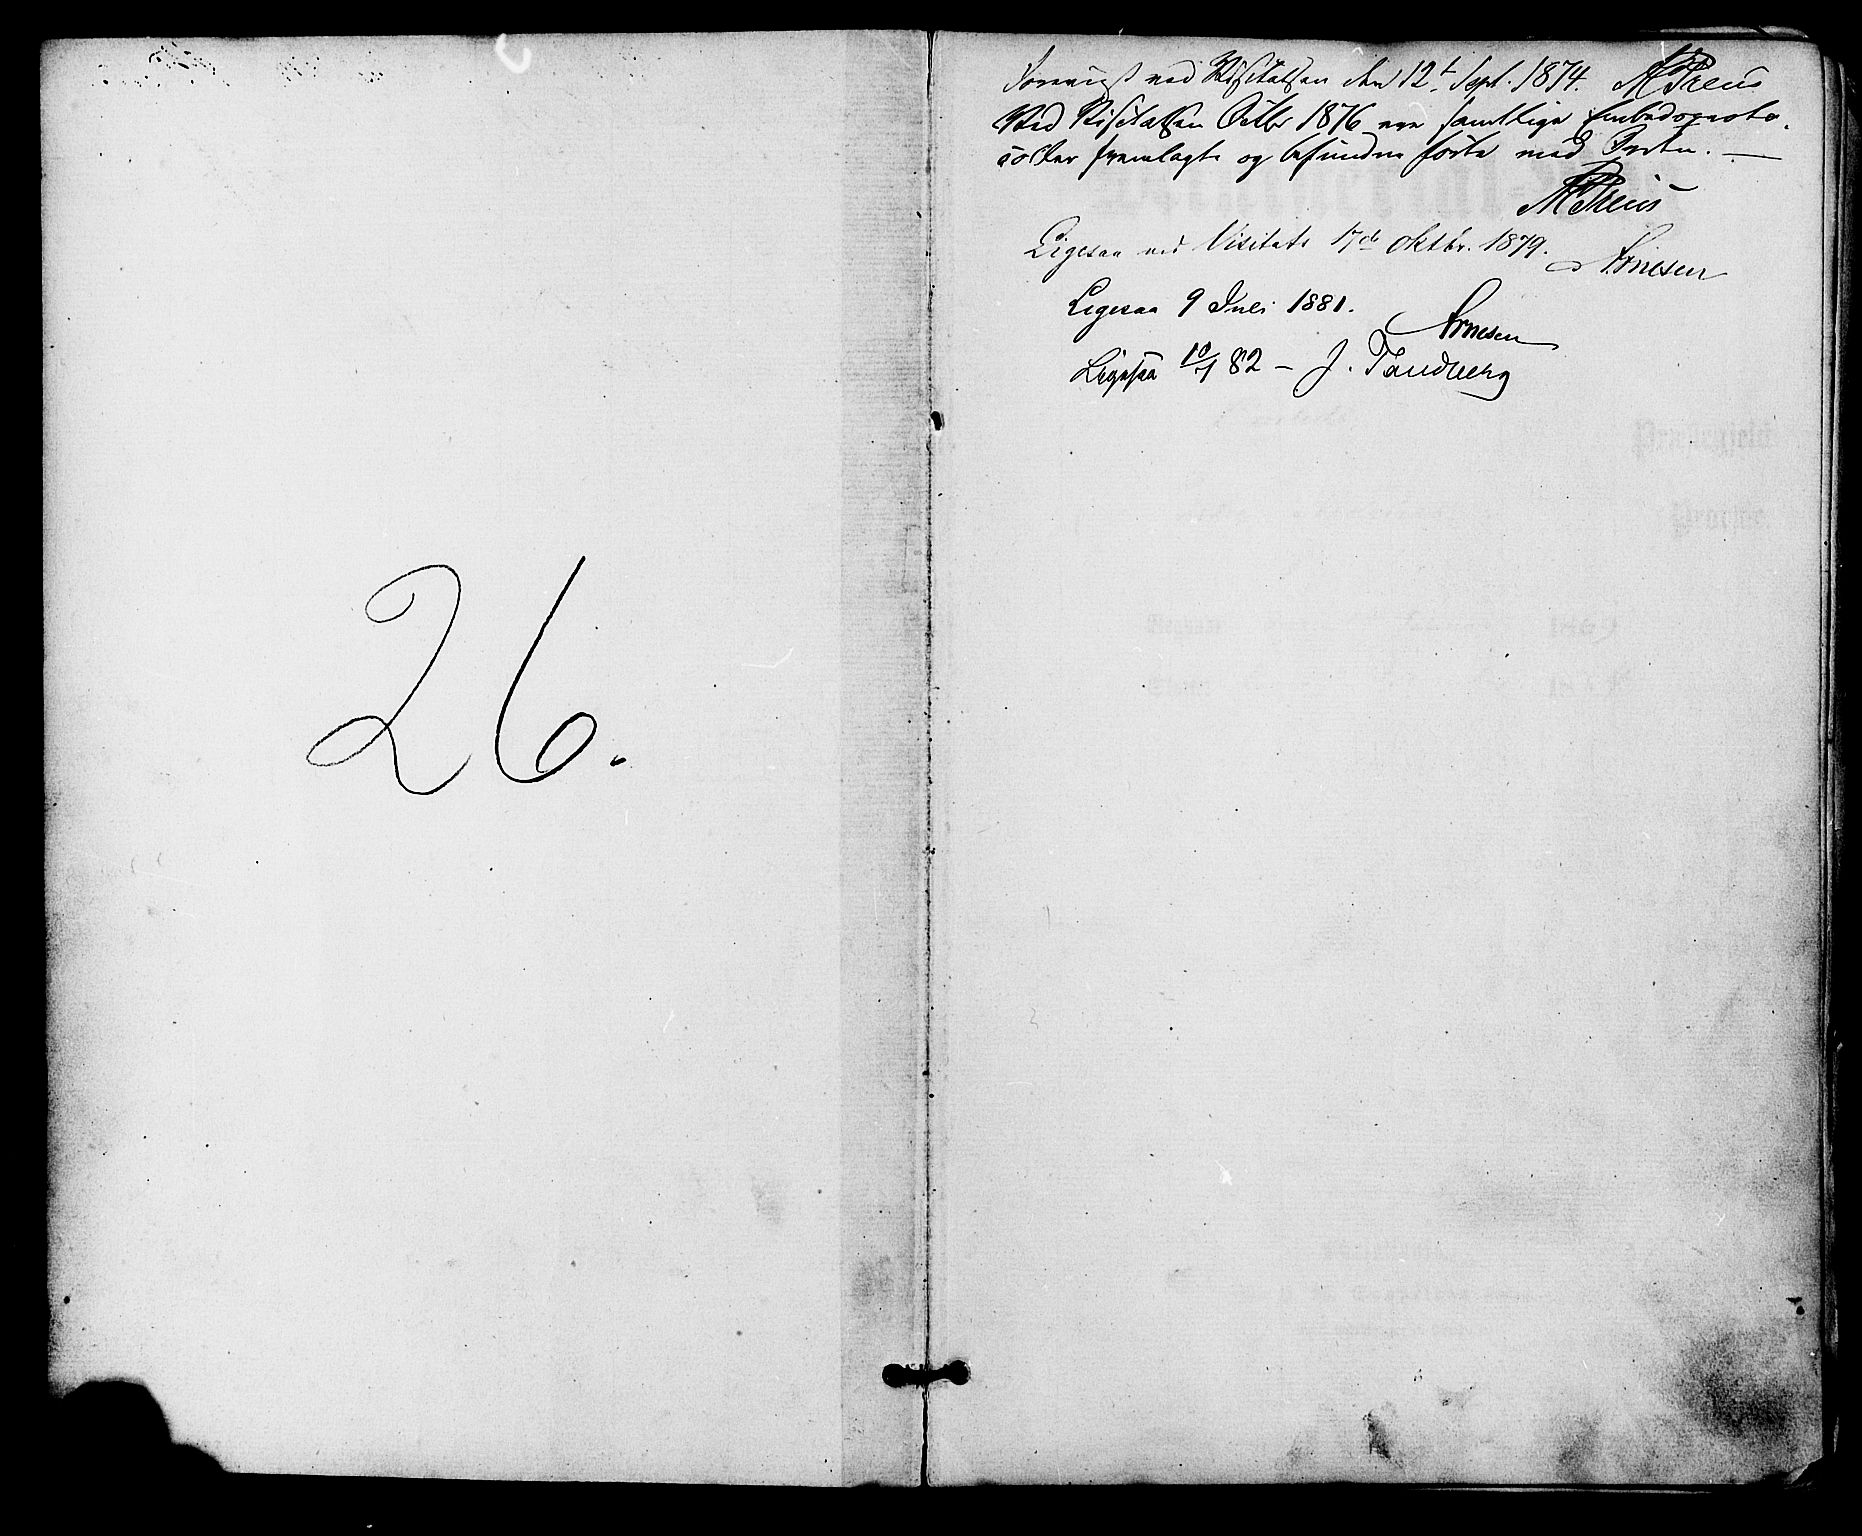 26.
Forevist ved Visitatsen den 12t. Sept. 1874. A Preus
Ved Visitatsen Octbr 1876 ere samtlige Embedsproto-
coller fremlagte og befundne førte med Orden. —
A Preus
Ligesaa ved Visitats 17de Oktbr. 1879. Arnesen
Ligesaa 9 Juli 1881. Arnesen
Ligesaa 10/7 82 – J. Tandberg
Præstegjeld
Provstie.
1869